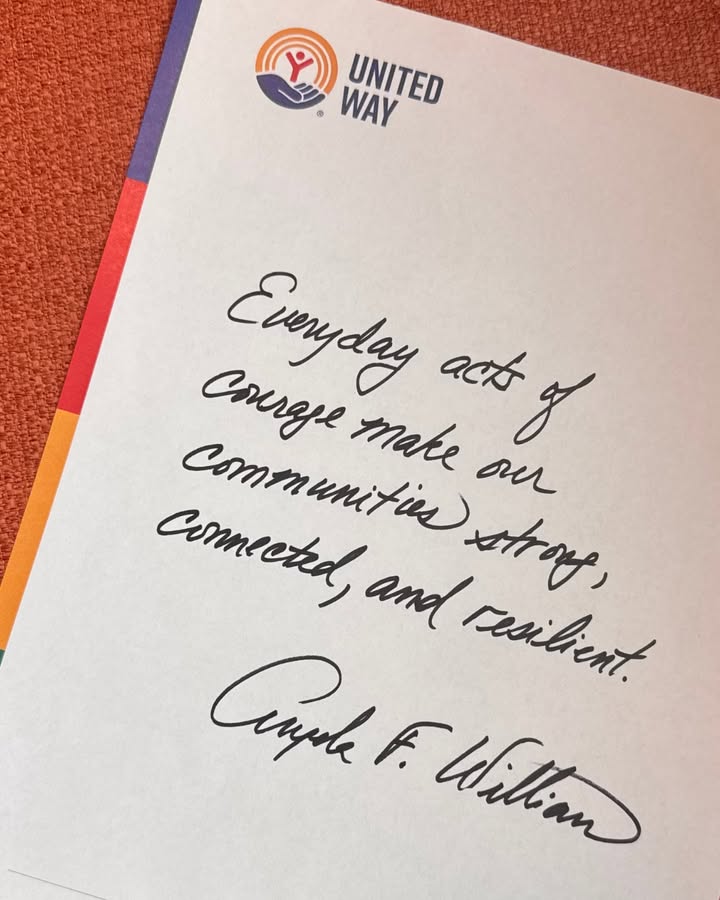 UNITED
WAY
Everyday acts of
courage make our
communities strong,
connected, and resilient.
Angela F. Williams